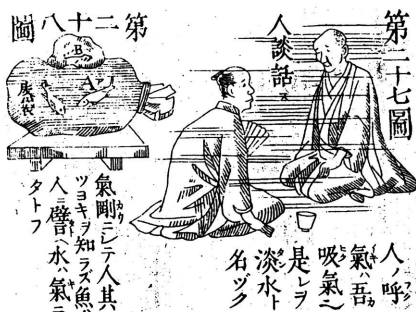 第二十七圖
人談話ス
人ノ呼
氣ハ吾
吸氣ニ
是レヲ
淡水ト
名ヅク
第二十八圖
B
A
氣剛ニシテ人其
ツヨキヲ知ラズ魚ハ
人ニ譬ヘ水ハ氣ニ
タトフ